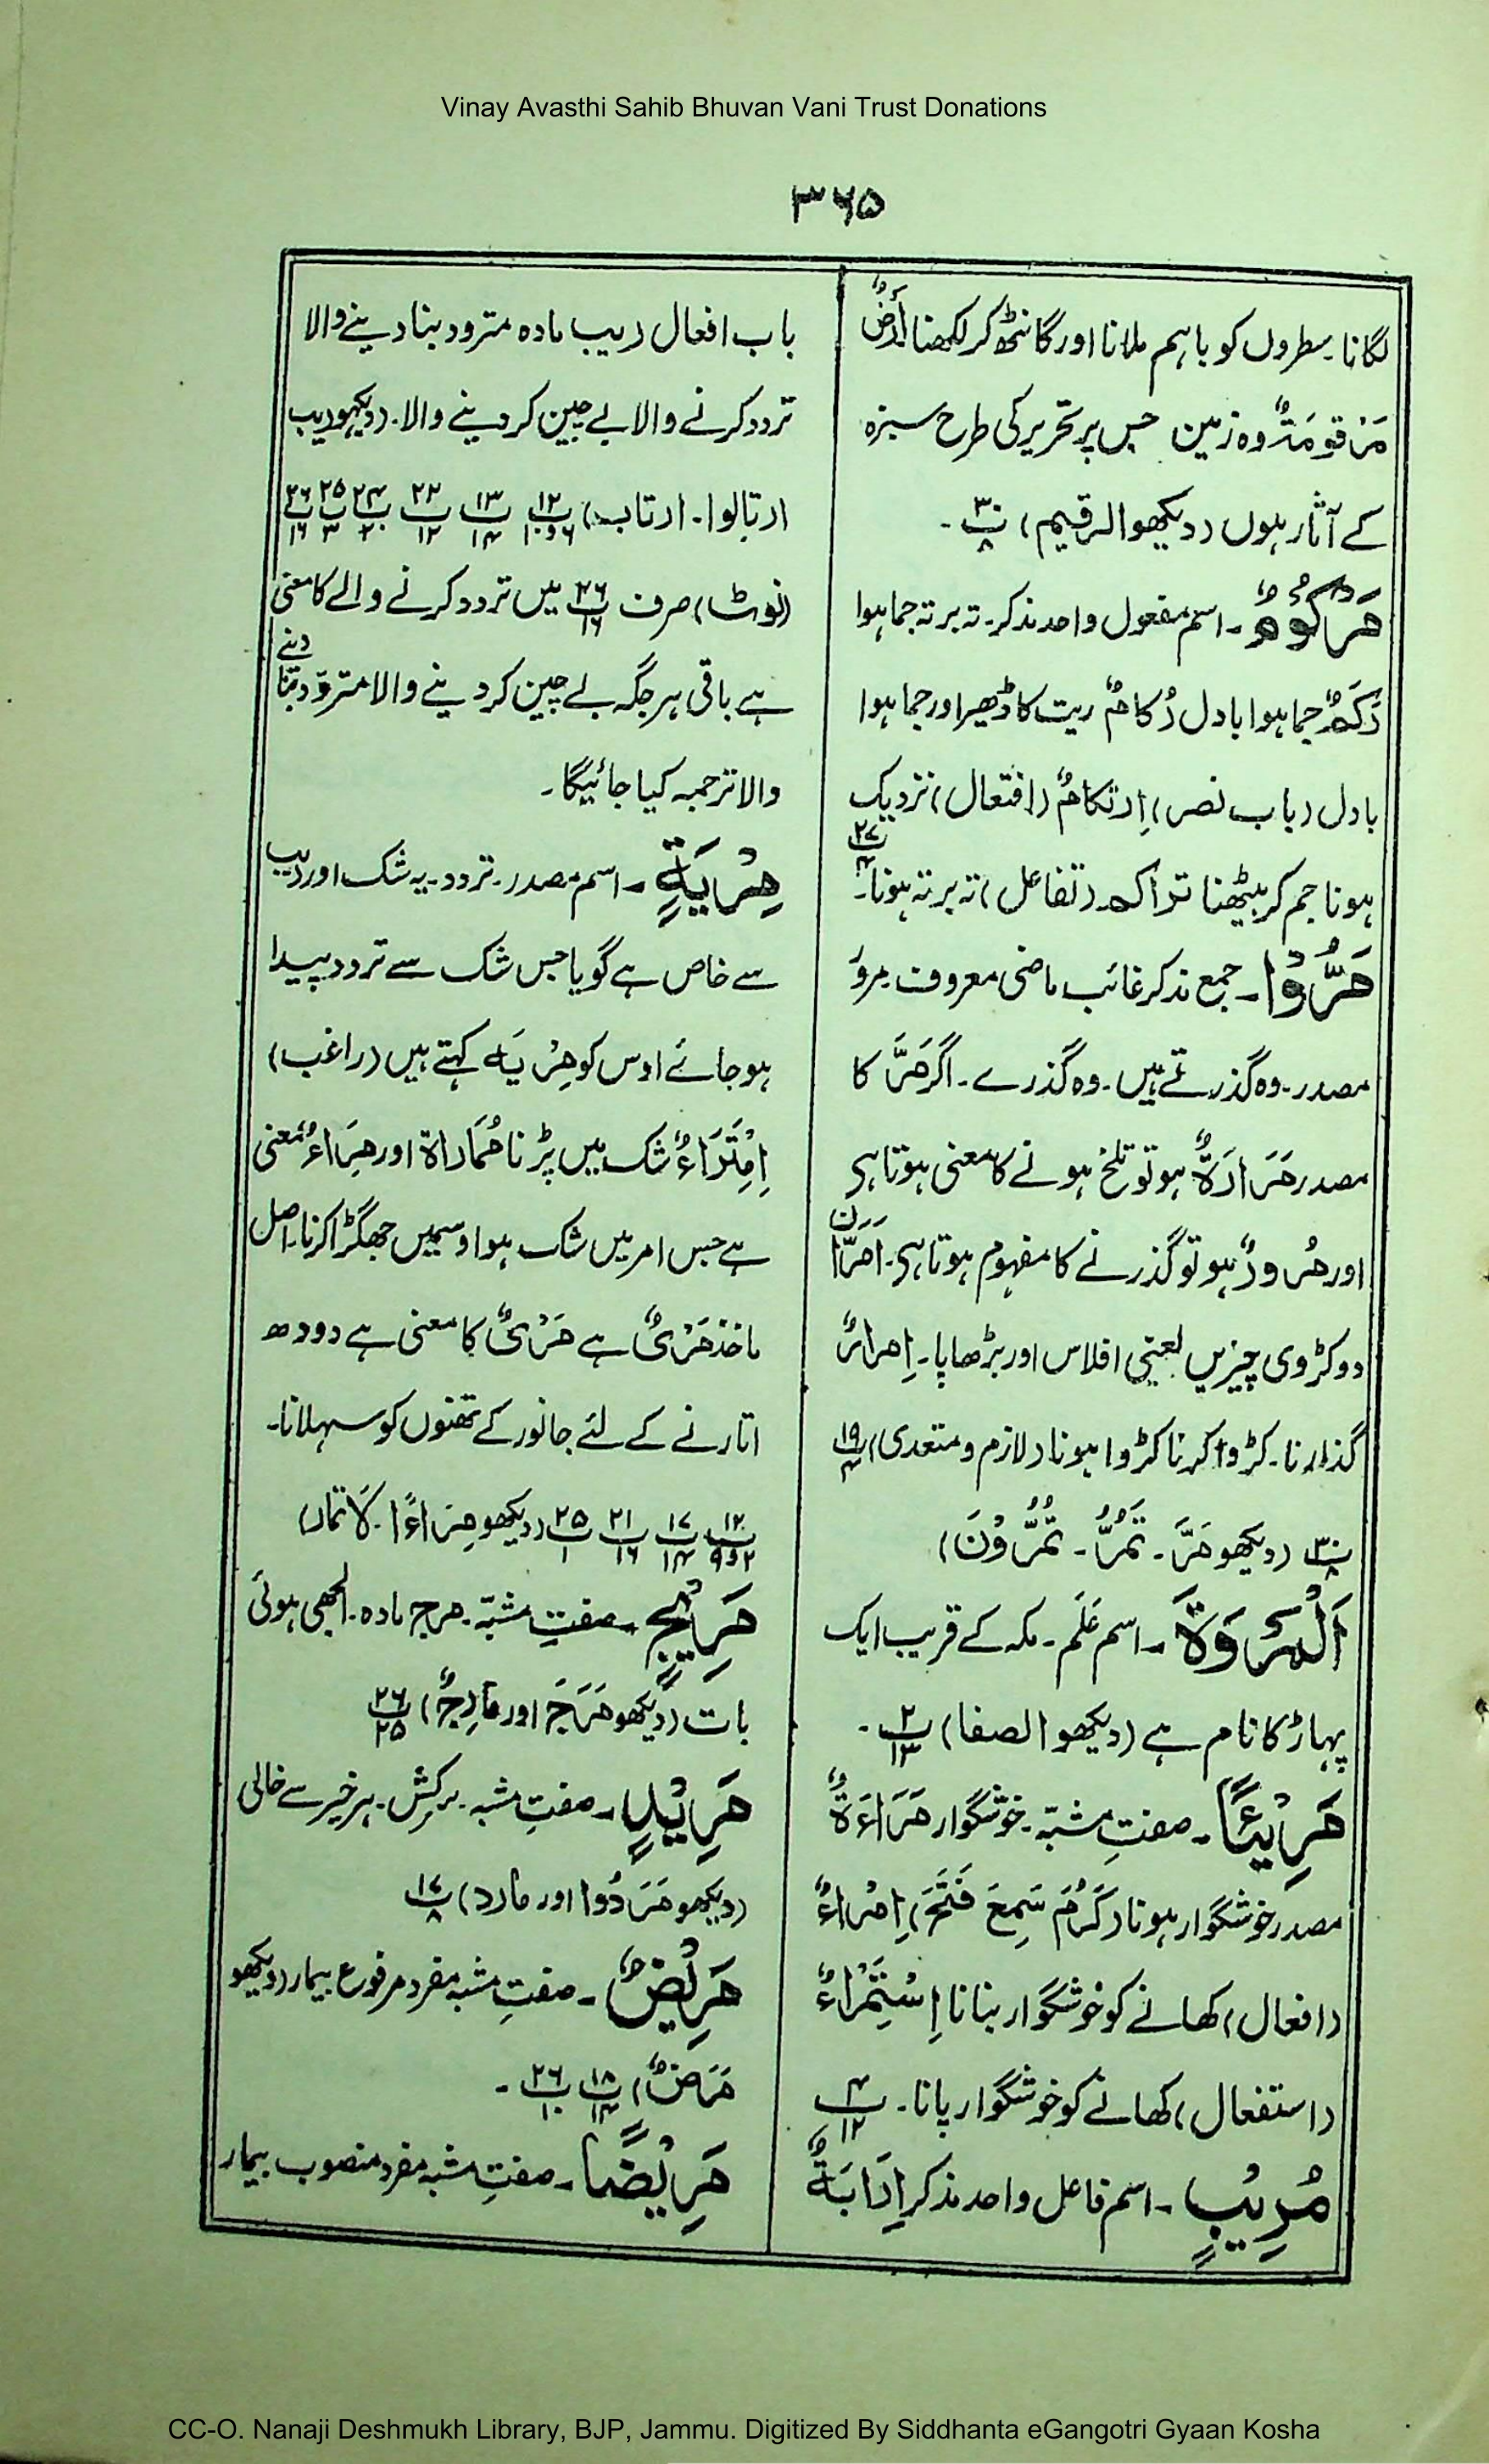 Vinay Avasthi Sahib Bhuvan Vani Trust Donations
۳۶۵
لگانا۔ سطروں کو باہم ملانا اور گانٹھ کر لکھنا أَرْضٌ
مَرْقُومَةٌ وہ زمین جس پر تحریر کی طرح سبزہ
کے آثار ہوں (دیکھو الرقیم) پ۳۰/۸ ۔
مَرْكُوْمٌ ۔ اسم مفعول واحد مذکر۔ تہ بر تہ جما ہوا
رَكَمٌ جما ہوا بادل رُكَامٌ ریت کا ڈھیر اور جما ہوا
بادل (باب نصر) اِرتکامٌ (افتعال) نزدیک
ہونا جم کر بیٹھنا تراکم (تفاعل) تہ بر تہ ہونا۔ پ۲۷/۴
مَرُّوْا ۔ جمع مذکر غائب ماضی معروف مرور
مصدر۔ وہ گذرتے ہیں۔ وہ گذرے۔ اگر مَرَّ کا
مصدر مَرَارَةٌ ہو تو تلخ ہونے کا معنی ہوتا ہی
اور مُرورٌ ہو تو گذرنے کا مفہوم ہوتا ہی۔ اَمَرَّانِ
دو کڑوی چیزیں یعنی افلاس اور بڑھاپا۔ اِمرارٌ
گذارنا۔ کڑوا کرنا کڑوا ہونا (لازم و متعدی) پ۱۹/۴
پ۳۰/۸ (دیکھو مَرَّ۔ تَمُرُّ۔ تَمُرُّوْنَ)
اَلْمَرْوَةَ ۔ اسم عَلَم۔ مکہ کے قریب ایک
پہاڑ کا نام ہے (دیکھو الصفا) پ۲/۳ ۔
مَرِيْئًا ۔ صفتِ مشبّہ۔ خوشگوار مَرَاءَةٌ
مصدر خوشگوار ہونا (كَرُمَ سَمِعَ فَتَحَ) اِمْراءٌ
(افعال) کھانے کو خوشگوار بنانا اِسْتِمْراءٌ
(استفعال) کھانے کو خوشگوار پانا۔ پ۴/۱۲
مُرِيْبٍ ۔ اسم فاعل واحد مذکر اِرَابَةٌ
باب افعال ریب مادہ مترود بنا دینے والا
تردد کرنے والا بے چین کر دینے والا۔ (دیکھو ریب
ارتابوا۔ ارتاب) پ۱۲/۶و۱۰ پ۱۳/۱۴ پ۲۲/۱۲ پ۲۴/۲۰ پ۲۵/۳ پ۲۶/۱۶
(نوٹ) صرف پ۲۶/۱۶ میں تردد کرنے والے کا معنی
ہے باقی ہر جگہ بے چین کر دینے والا مترود بنا دینے
والا ترجمہ کیا جائیگا۔
مِرْيَةٍ ۔ اسم مصدر۔ تردد۔ یہ شک اور ریب
سے خاص ہے گویا جس شک سے تردد پیدا
ہو جائے اوس کو مِرْيَه کہتے ہیں (راغب)
اِمْتِرَاءٌ شک میں پڑنا مُمَاراة اور مِرَاءٌ بمعنی
ہے جس امر میں شک ہو اوسمیں جھگڑا کرنا۔ اصل
ماخذ مَرْیٌ ہے مَرْیٌ کا معنی ہے دودھ
اتارنے کے لئے جانور کے تھنوں کو سہلانا۔
پ۱۲/۲و۹ پ۱۷/۱۴ پ۲۱/۱۶ پ۲۵/۱ (دیکھو مِرَاءًا۔ لَا تمار)
مَرِيْجٍ ۔ صفتِ مشبّہ۔ مرج مادہ۔ الجھی ہوئی
بات (دیکھو مَرَجَ اور مَارِجٌ) پ۲۶/۲۵
مَرِيْدٍ ۔ صفتِ مشبہ۔ سرکش۔ ہر خیر سے خالی
(دیکھو مَرَدُوا اور مارد) پ۱۷/۸
مَرِيْضٌ ۔ صفتِ مشبہ مفرد مرفوع بیمار (دیکھو
مَرَضٌ) پ۱۸/۱۴ پ۲۶/۱۰ ۔
مَرِيْضًا ۔ صفتِ مشبہ مفرد منصوب بیمار
CC-O. Nanaji Deshmukh Library, BJP, Jammu. Digitized By Siddhanta eGangotri Gyaan Kosha